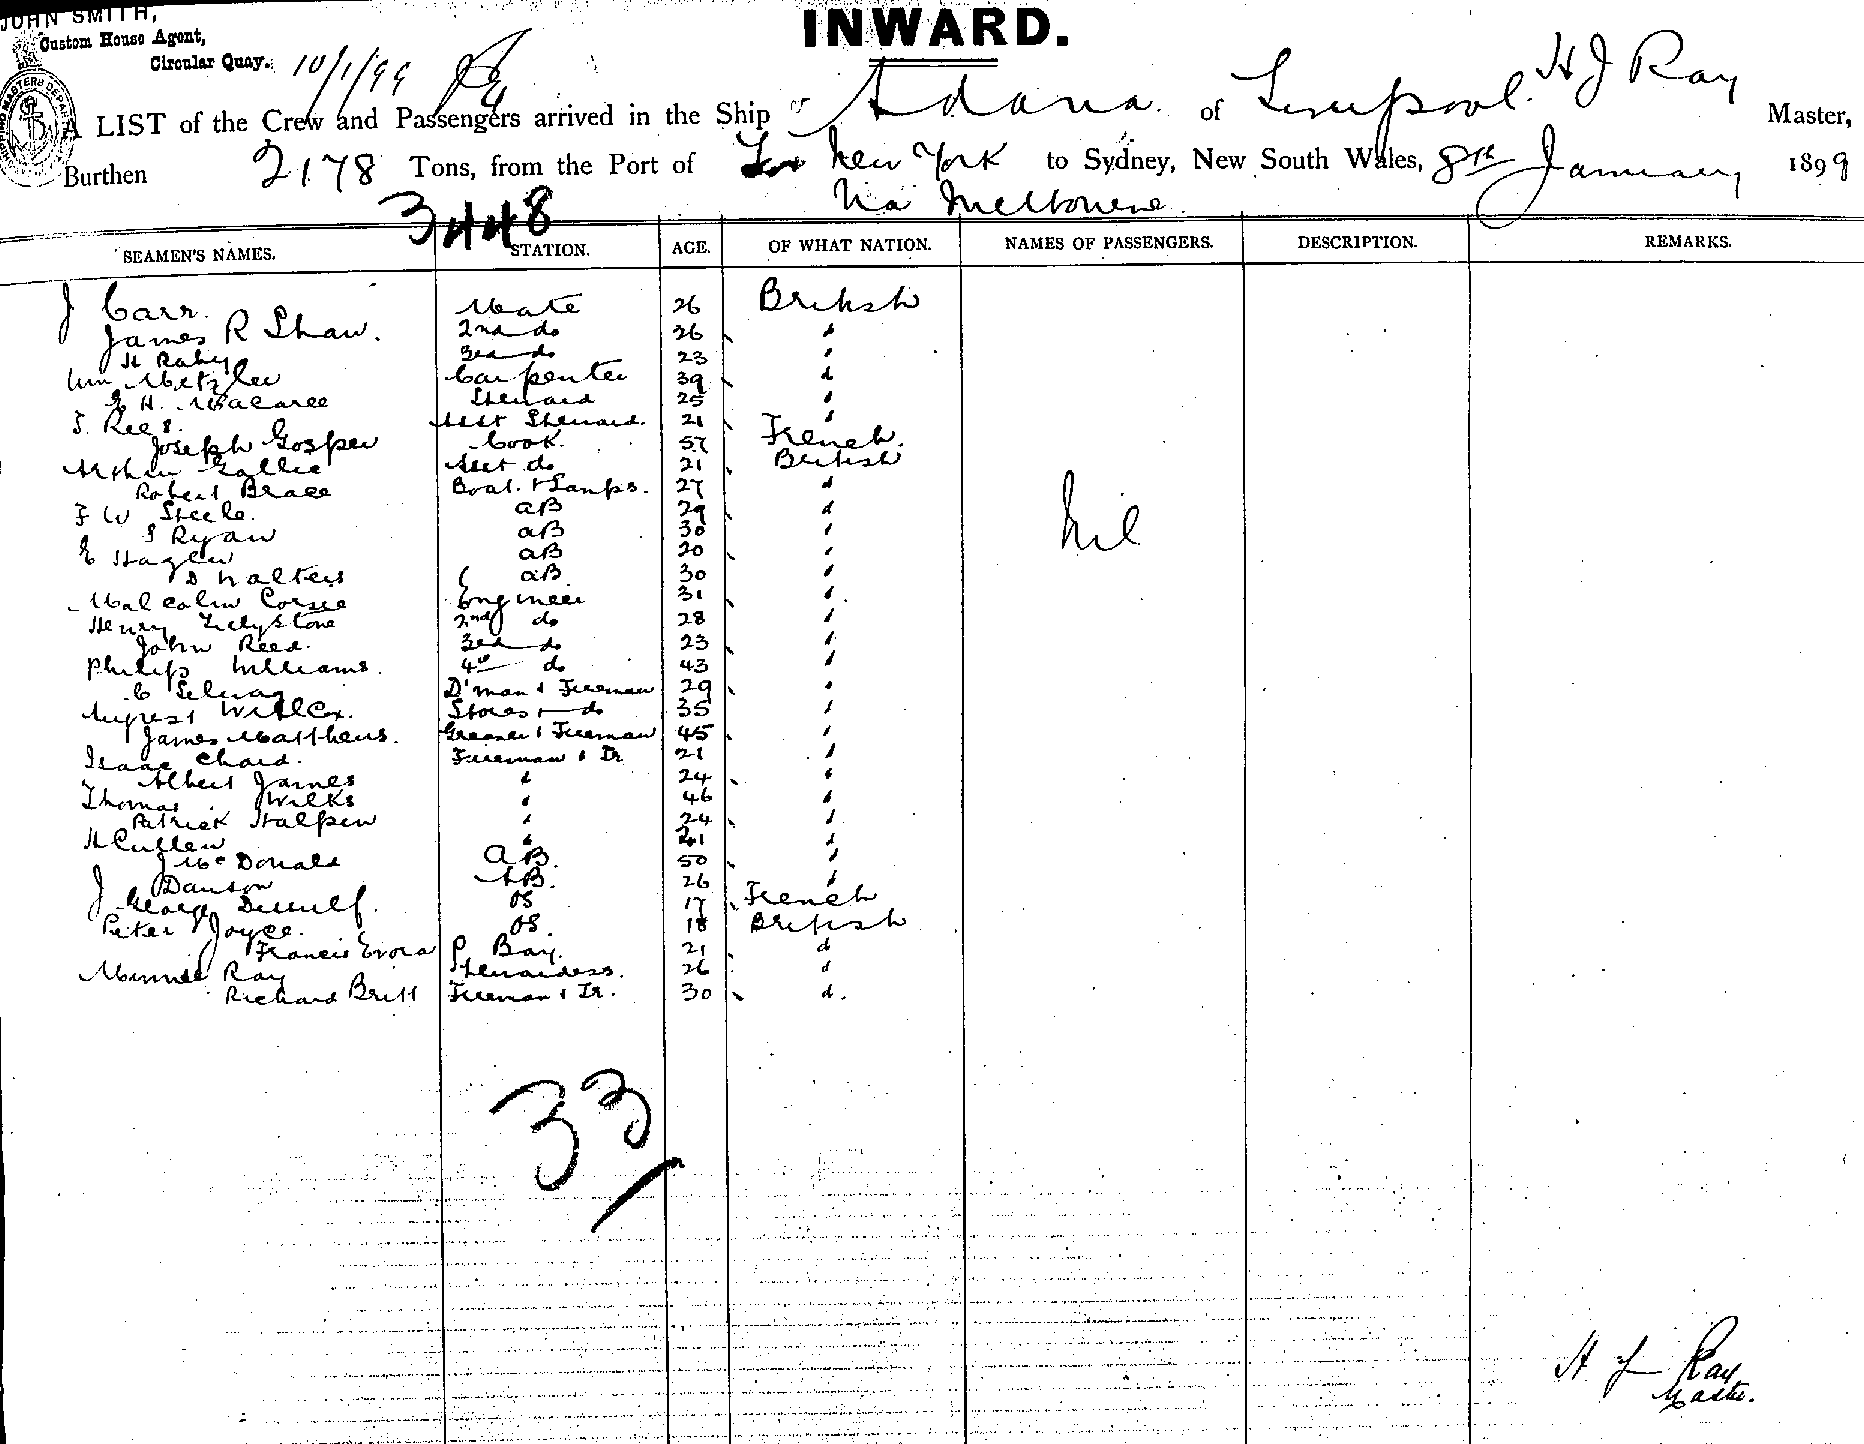 JOHN SMITH,
Custom House Agent,
Circular Quay.
10/1/99
INWARD.
A LIST of the Crew and Passengers arrived in the Ship Adana of Liverpool. H J Ray Master,
Burthen 2178 Tons, from the Port of New York to Sydney, New South Wales, 8th January 1899
Via Melbourne
3448
SEAMEN'S NAMES. STATION. AGE. OF WHAT NATION. NAMES OF PASSENGERS. DESCRIPTION. REMARKS.
J Carr. Mate 26 British
James R Shaw. 2nd do 26 "
H Raby 3rd do 23 "
Wm Metzler Carpenter 39 "
E H. Macaree Steward 25 "
Rees. Asst Steward. 21 "
Joseph Cook. 57 French.
Arthur Gallie Asst do 21 British
Robert Brace Boat. & Lamps. 27 "
F W Steele. AB 29 "
S Ryan AB 30 "
E Hagler AB 20 "
D Walters AB 30 "
Malcolm Corsie Engineer 31 "
Henry 2nd do 28 "
John Reed. 3rd do 23 "
Philip Williams. 4th do 43 "
C D'man & Fireman 29 "
Willcox. Stores & do 35 "
James Matthews. Greaser & Fireman 45 "
Isaac Chard. Fireman & Tr 21 "
Albert James " 24 "
Thomas Wilks " 46 "
Patrick Halpin " 24 "
H Cullen " 21 "
J McDonald AB. 50 "
J Dawson AB. 26 "
George OS 17 French
Peter Joyce. OS. 18 British
Francis P Bay. 21 "
Minnie Ray Stewardess. 26 "
Richard Britt Fireman & Tr. 30 "
Nil
33
H J Ray
Master.